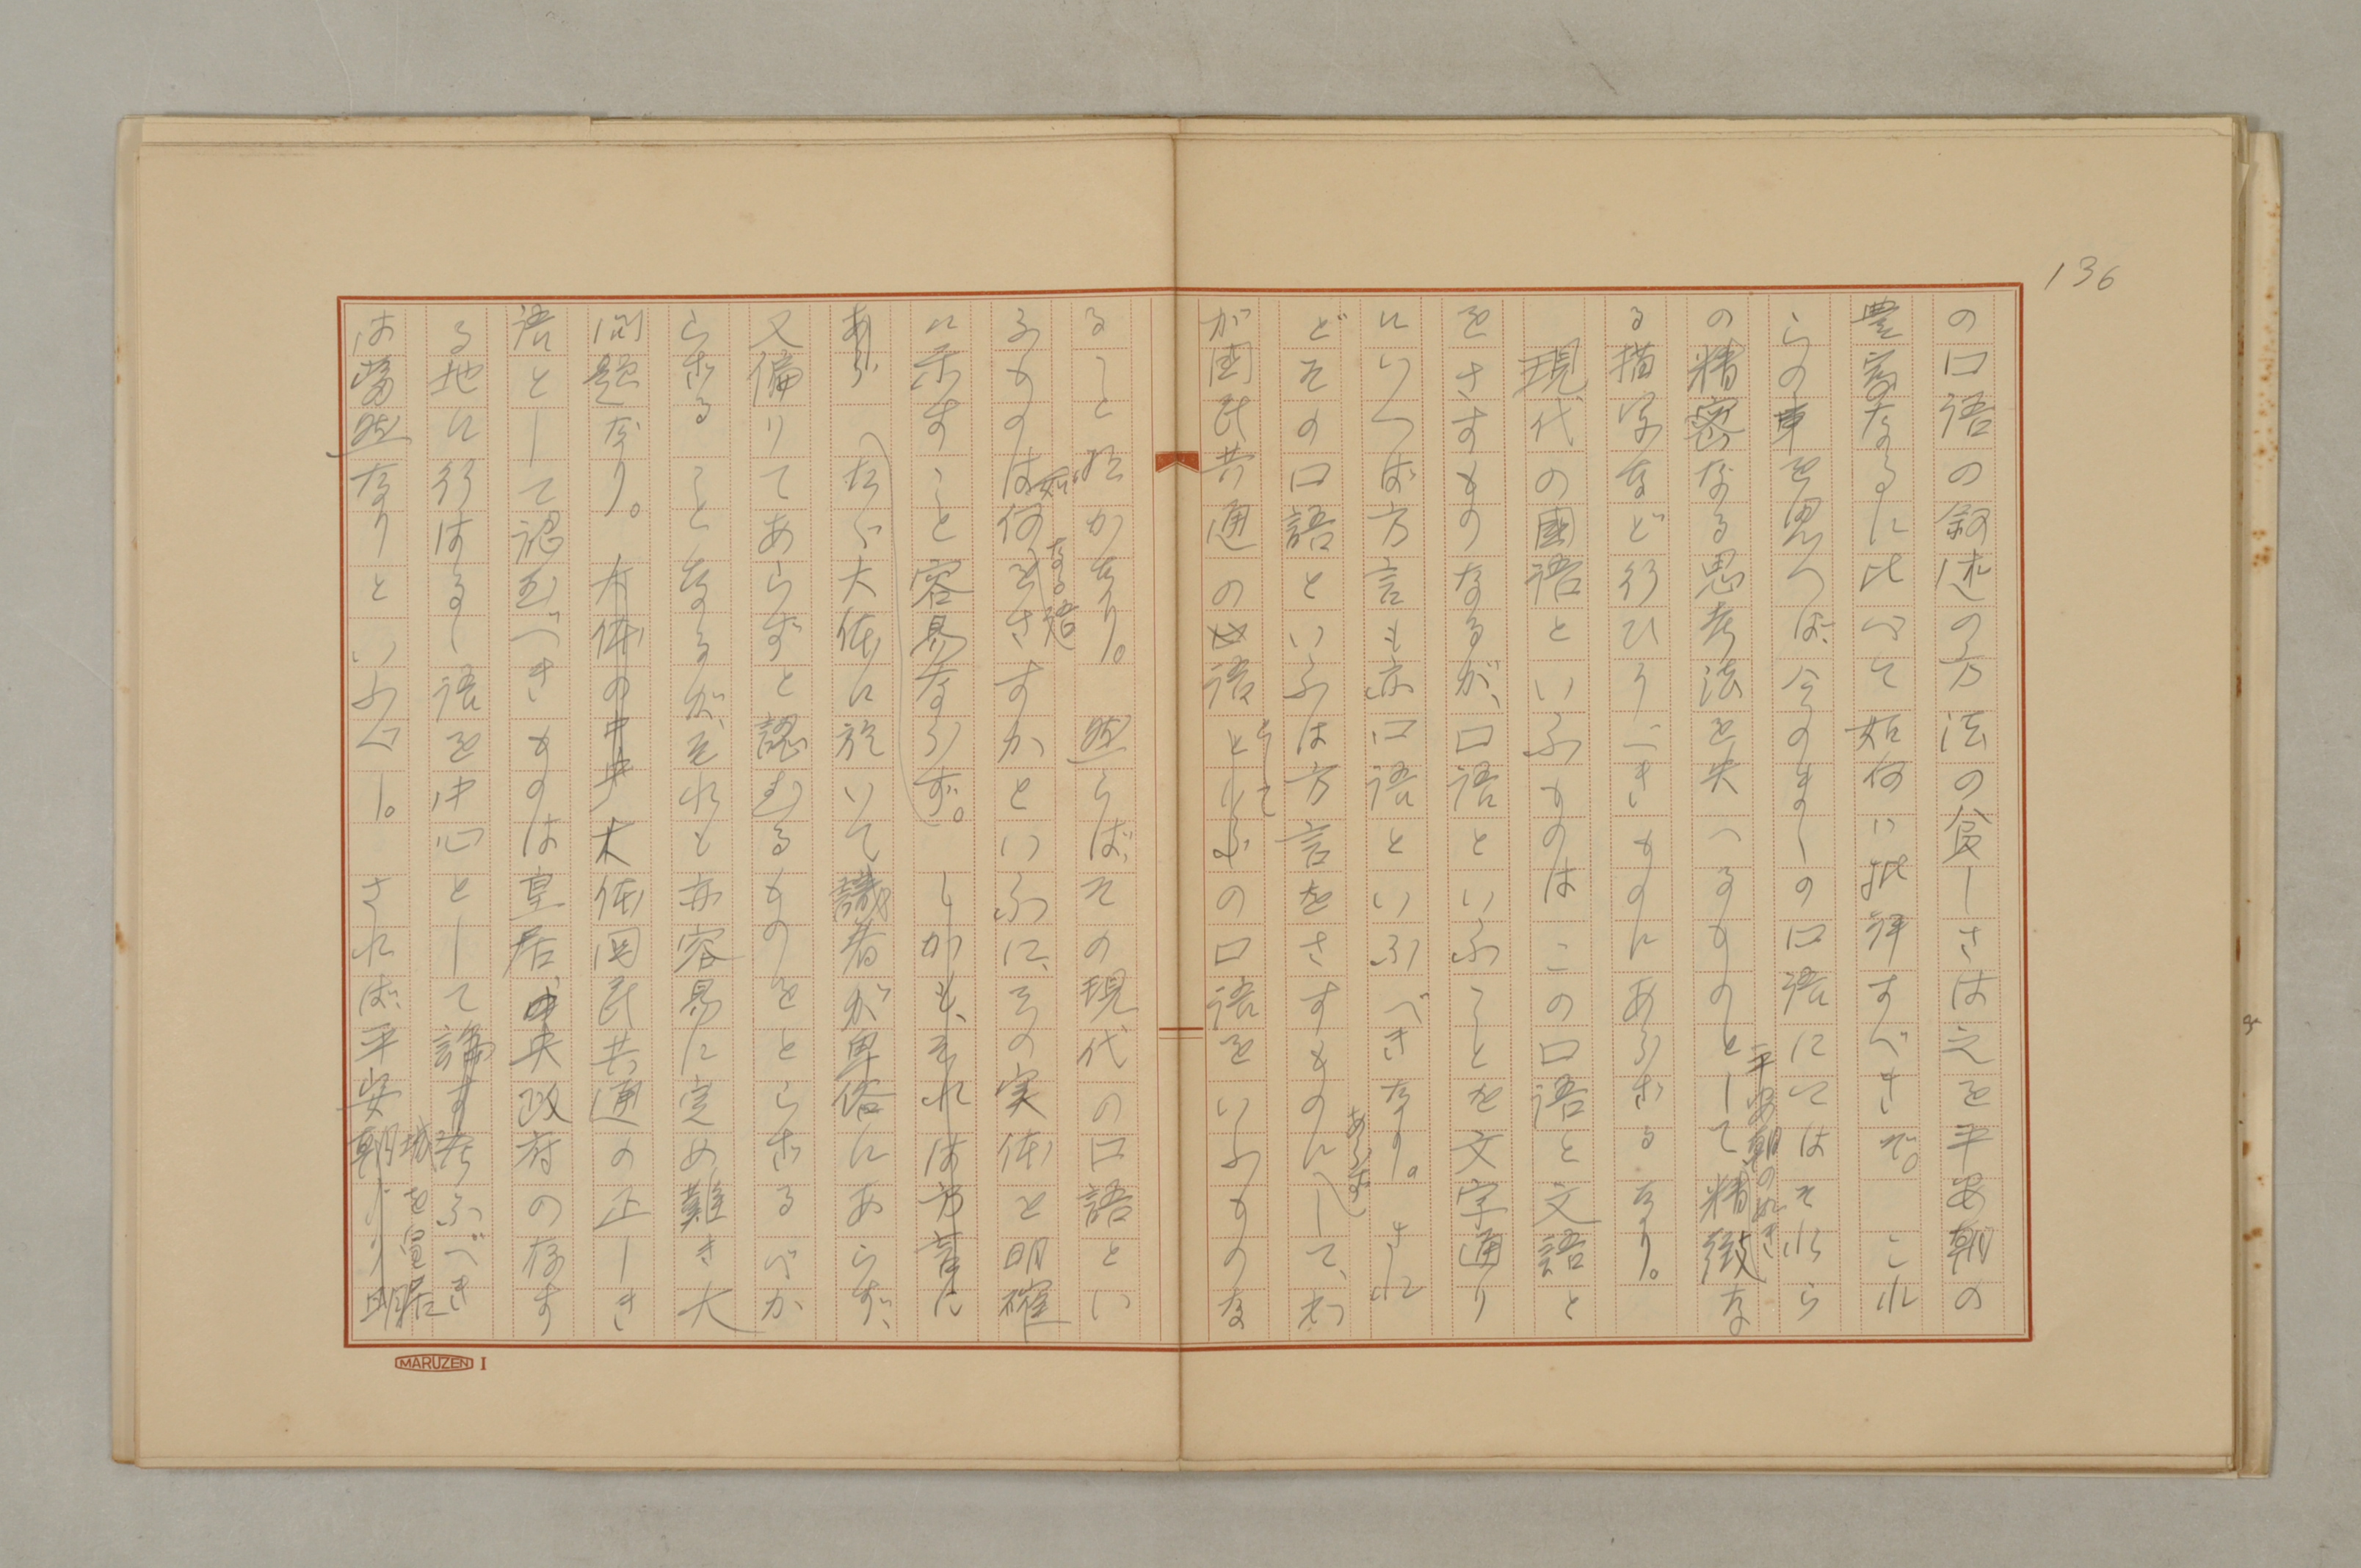 136
の口語の叙述の方法の貧しさは之を平安朝の
豊富なるに比べて如何に批評すべきぞ。これ
らの事を思へば、今のまゝの口語にてはそれら
の精密なる思考法を失へるものとして平安朝の如き精緻な
る描写など行ひうべきものにあらざるなり。
現代の國語といふものはこの口語と文語と
をさすものなるが、口語といふことを文字通り
にいへば方言も亦口語といふべきなり。され
どその口語といふは方言をさすものにあらずして、わ
が国民共通の語としての口語をいふものな
ること明かなり。然らば、その現代の口語とい
ふものは如何なる語をさすかといふに、その実体を明確
に示すこと容易ならず。しかも、それは方言に
あらず、たゞ大体に於いて識者が卑俗にあらず、
又偏りてあらずと認むるものをとらざるべか
らざることなるが、それも亦容易に定め難き大
問題なり。大体の中央大体国民共通の正しき
語として認むべきものは皇居、中央政府の存す
る地に行はるゝ語を中心として論ず考ふべき
は當然なりといふべし。されば、平安朝より明
城を皇居
MARUZEN I